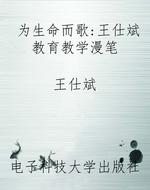 为生命而歌:王仕斌
教育教学漫笔
王仕斌
电子科技大学出版社